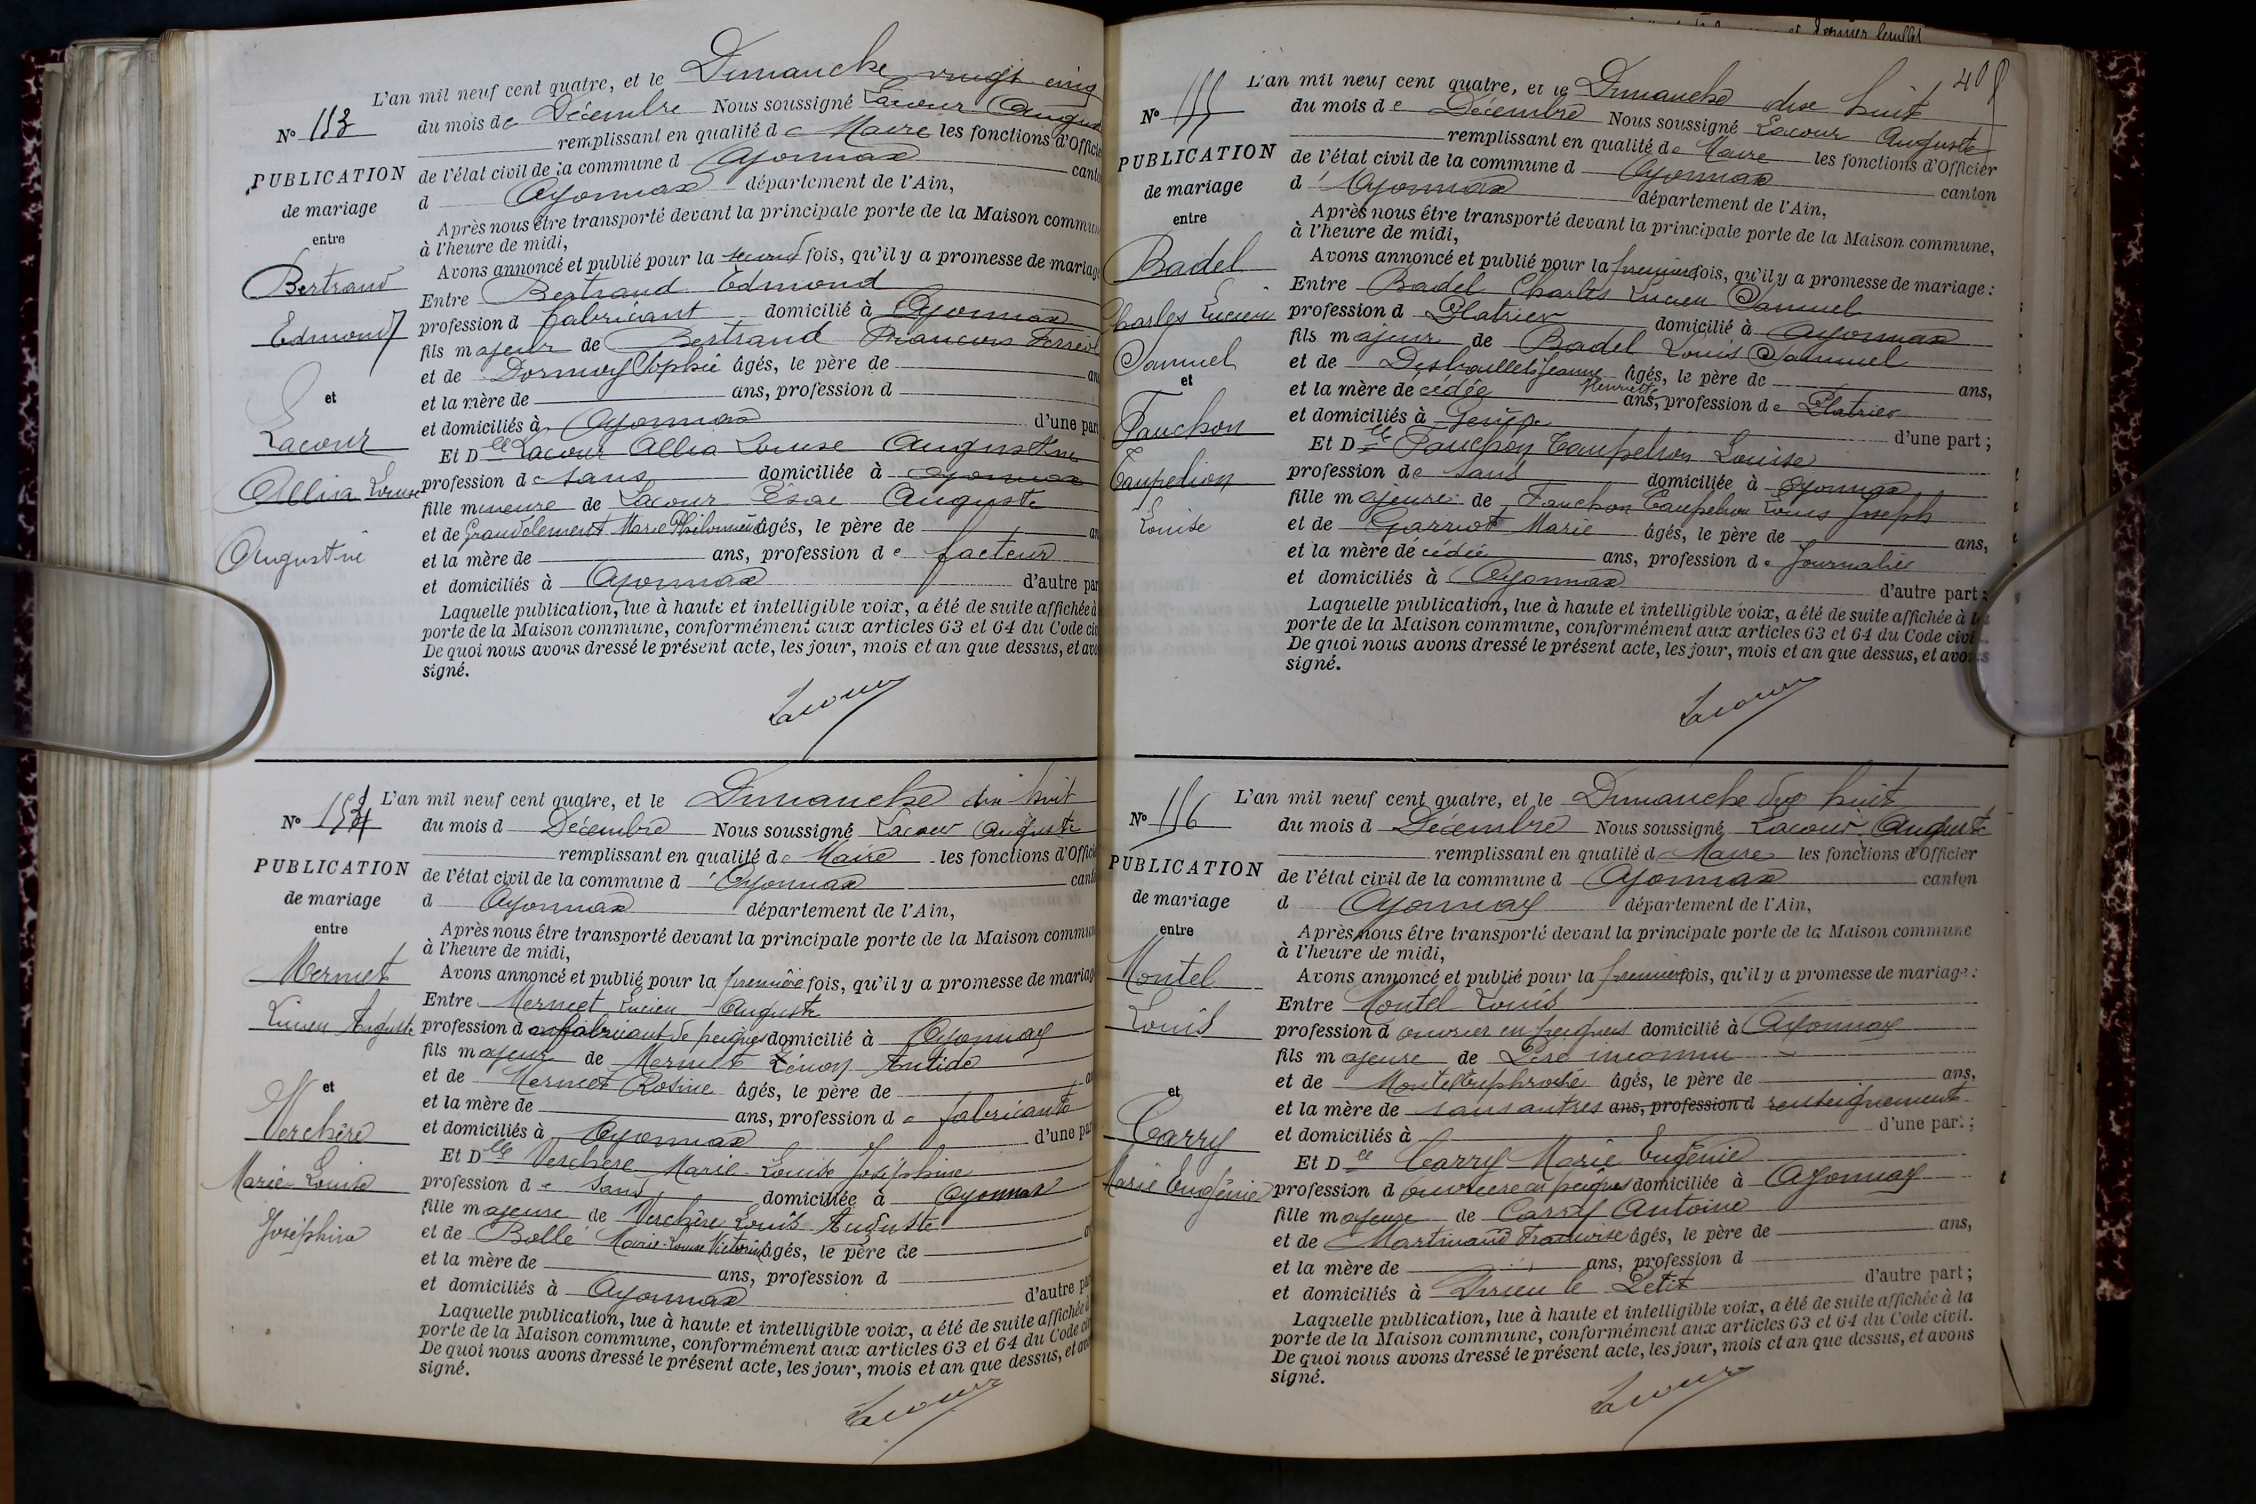 N° 153
PUBLICATION
de mariage
entre
Bertrand
Edmond
et
Lacour
Allia Louise
Augustine
L'an mil neuf cent quatre, et le Dimanche vingt cinq
du mois de Décembre Nous soussigné Lacour August
remplissant en qualité de Maire les fonctions d'Officie
de l'état civil de la commune d Oyonnax canto
d Oyonnax département de l'Ain,
Après nous être transporté devant la principale porte de la Maison commun
à l'heure de midi,
Avons annoncé et publié pour la second fois, qu'il y a promesse de mariag
Entre Bertrand Edmond
profession d fabricant domicilié à Oyonnax
fils majeur de Bertrand François
et de Dormoy Sophie âgés, le père de an
et la mère de ans, profession d
et domiciliés à Oyonnax d'une part
Et Dlle Lacour Allia Louise Augustine
profession de sans domiciliée à Oyonnax
fille mineure de Lacour César Auguste
et de Grandclément Marie Philomène âgés, le père de an
et la mère de ans, profession de facteur
et domiciliés à Oyonnax d'autre par
Laquelle publication, lue à haute et intelligible voix, a été de suite affichée à
porte de la Maison commune, conformément aux articles 63 et 64 du Code civ
De quoi nous avons dressé le présent acte, les jour, mois et an que dessus, et avo
signé.
Lacour
N° 154
PUBLICATION
de mariage
entre
Mermet
Lucien Auguste
et
Verchère
Marie Louise
Joséphine
L'an mil neuf cent quatre, et le Dimanche dix huit
du mois d Décembre Nous soussigné Lacour Auguste
remplissant en qualité de Maire les fonctions d'Offici
de l'état civil de la commune d'Oyonnax cant
d Oyonnax département de l'Ain,
Après nous être transporté devant la principale porte de la Maison commun
à l'heure de midi,
Avons annoncé et publié pour la première fois, qu'il y a promesse de mariag
Entre Mermet Lucien Auguste
profession d fabricant de peignes domicilié à Oyonnax
fils majeur de Mermet Zénon Antide
et de Mermet Rosine âgés, le père de an
et la mère de ans, profession de fabricants
et domiciliés à Oyonnax d'une par
Et Dlle Verchère Marie Louise Joséphine
profession de sans domiciliée à Oyonnax
fille majeure de Verchère Louis Auguste
et de Bollé Marie-Louise Victorine âgés, le père de an
et la mère de ans, profession d
et domiciliés à Oyonnax d'autre par
Laquelle publication, lue à haute et intelligible voix, a été de suite affichée à
porte de la Maison commune, conformément aux articles 63 et 64 du Code civ
De quoi nous avons dressé le présent acte, les jour, mois et an que dessus, et avo
signé.
Lacour
et dernier feuillet
408
N° 155
PUBLICATION
de mariage
entre
Badel
Charles Lucien
Samuel
et
Fauchon
Taupelion
Louise
L'an mil neuf cent quatre, et le Dimanche dix huit
du mois de Décembre Nous soussigné Lacour Auguste
remplissant en qualité de Maire les fonctions d'Officier
de l'état civil de la commune d Oyonnax canton
d'Oyonnax département de l'Ain,
Après nous être transporté devant la principale porte de la Maison commune,
à l'heure de midi,
Avons annoncé et publié pour la première fois, qu'il y a promesse de mariage :
Entre Badel Charles Lucien Samuel
profession d Platrier domicilié à Oyonnax
fils majeur de Badel Louis Samuel
et de Jeanne Henriette âgés, le père de ans,
et la mère décédée ans, profession de Platrier
et domiciliés à Genève d'une part ;
Et Dlle Fauchon Taupelion Louise
profession de sans domiciliée à Oyonnax
fille majeure de Fauchon Taupelion Louis Joseph
et de Garriot Marie âgés, le père de ans,
et la mère décédée ans, profession de Journalier
et domiciliés à Oyonnax d'autre part ;
Laquelle publication, lue à haute et intelligible voix, a été de suite affichée à la
porte de la Maison commune, conformément aux articles 63 et 64 du Code civil.
De quoi nous avons dressé le présent acte, les jour, mois et an que dessus, et avons
signé.
Lacour
N° 156
PUBLICATION
de mariage
entre
Montel
Louis
et
Carry
Marie Eugénie
L'an mil neuf cent quatre, et le Dimanche dix huit
du mois d Décembre Nous soussigné Lacour Auguste
remplissant en qualité d Maire les fonctions d'Officier
de l'état civil de la commune d Oyonnax canton
d Oyonnax département de l'Ain,
Après nous être transporté devant la principale porte de la Maison commune
à l'heure de midi,
Avons annoncé et publié pour la première fois, qu'il y a promesse de mariage :
Entre Montel Louis
profession d ouvrier en peignes domicilié à Oyonnax
fils majeure de Père inconnu
et de Montel Euphrosie âgés, le père de ans,
et la mère de sans autres ans, profession d renseignements
et domiciliés à d'une part ;
Et Dlle Carry Marie Eugénie
profession d ouvrière en peignes domiciliée à Oyonnax
fille majeure de Carry Antoine
et de Martinand Francoise âgés, le père de ans,
et la mère de ans, profession d
et domiciliés à Dizieu le Petit d'autre part ;
Laquelle publication, lue à haute et intelligible voix, a été de suite affichée à la
porte de la Maison commune, conformément aux articles 63 et 64 du Code civil.
De quoi nous avons dressé le présent acte, les jour, mois et an que dessus, et avons
signé.
Lacour